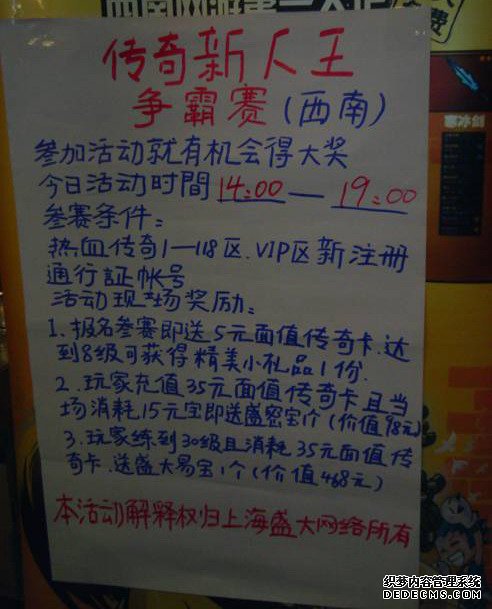 传奇新人王
争霸赛(西南)
参加活动就有机会得大奖
今日活动时間 14:00 — 19:00
参赛条件:
热血传奇1—118区.VIP区新注册
通行証帐号
活动现场奖励:
1.报名参赛即送5元面值传奇卡.达
到8级可获得精美小礼品1份.
2.玩家充值35元面值传奇卡且当
场消耗15元宝即送盛密宝1个(价值98元)
3.玩家练到30级且消耗35元面值传
奇卡.送盛大易宝1个(价值468元)
本活动解釋权归上海盛大网络所有
寒冰剑
费
织梦内容管理系统
DEDECMS.COM